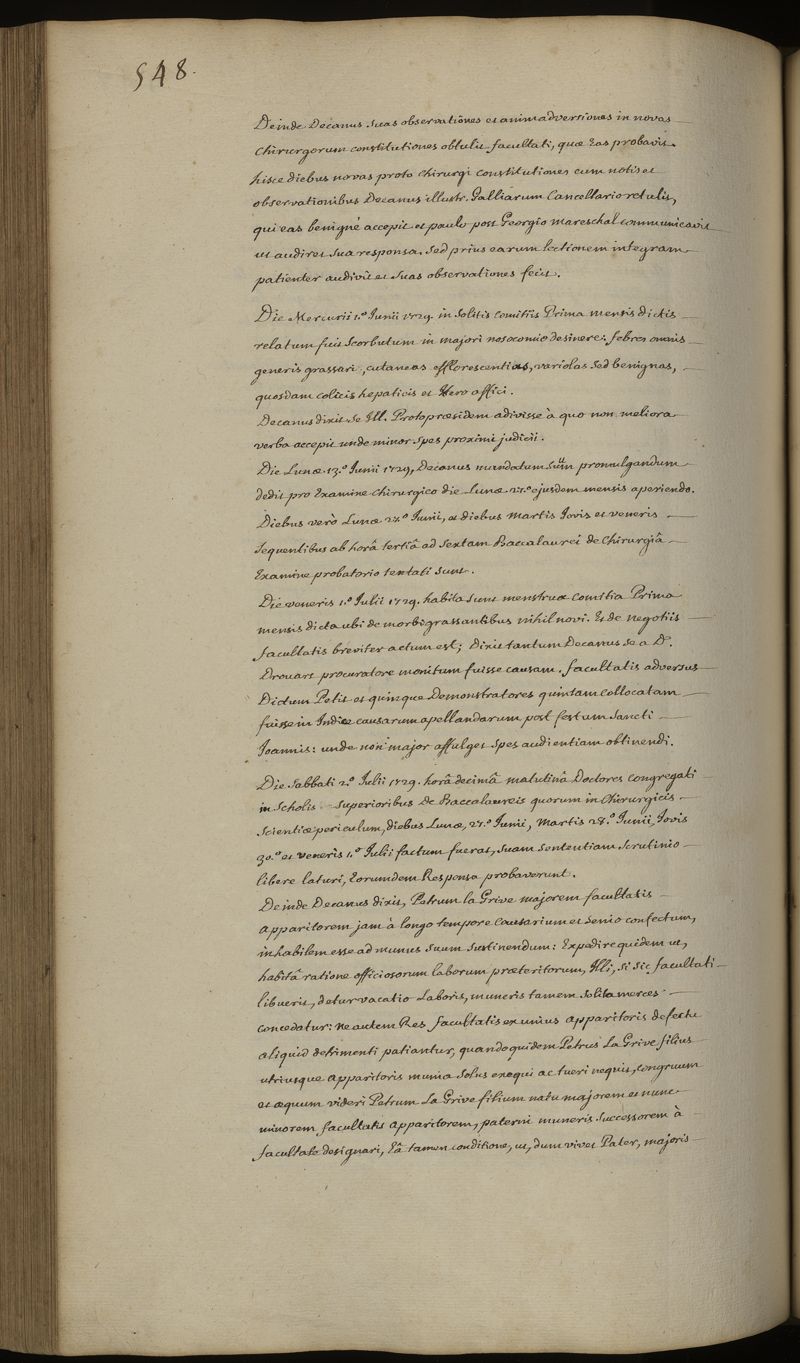 548.
Deinde Decanus suas observationes et animadversiones in novas
Chirurgorum constitutiones obtulit facultati, quæ eas probavit.
hisce diebus novas proto chirurgi constitutiones cum notis et
observationibus Decanus illustr. Galliarum Cancellario retulit,
qui eas benignè accepit et paulo post Georgio Mareschal communicavit
ut audiret sua responsa. sed prius earum lectionem integram
patienter audivit et suas observationes fecit.
Die Mercurii 1.º Junii 1729. in solitis comitiis Prima mensis dictis
relatum fuit scorbutum in majori nosocomio desinere: febres omnis
generis grassari, cutaneas efflorescentias, variolas sed benignas,
quosdam colicis hepaticis et Ictero affici.
Decanus dixit se Ill. Protopræsidem adivisse à quo non meliora
verba accepit unde minor spes proximi judicii.
Die Lunæ 13.º Junii 1729, Decanus mandatum suum promulgandum
dedit pro Examine Chirurgico die Lunæ 27.º ejusdem mensis aperiendo.
Diebus verò Lunæ 27.º Junii, et diebus Martis Jovis et veneris
sequentibus ab horâ tertiâ ad sextam Baccalaurei de Chirurgiâ
Examine probatorio tentati sunt.
Die veneris 1.º Julii 1729. habita sunt menstrua comitia Prima
mensis dicta ubi de morbis grassantibus nihil novi. Et de negotiis
facultatis breviter actum est; Dixit tantum Decanus se a D.
Drouart procuratore monitum fuisse causam facultatis adversus
Dictum Petit et quinque Demonstratores quintam collocatam
fuisse in Indice causarum apellandarum post festum Sancti
Joannis: unde non major affulget spes audientiam obtinendi.
Die Sabbati 2.º Julii 1729. horâ decimâ matutinâ Doctores congregati
in Scholis superioribus de Baccalaureis quorum in Chirurgicis
scientiæ periculum, diebus Lunæ, 27.º Junii, Martis 28.º Junii, Jovis
30.º et veneris 1.º Julii factum fuerat, suam sententiam scrutinio
libere laturi, eorumdem Responsa probaverunt.
Deinde Decanus dixit, Petrum la Grive majorem facultatis
apparitorem jam à longo tempore causarium et senio confectum,
inhabilem esse ad munus suum sustinendum: Expedire quidem ut,
habitâ ratione officiosorum laborum præteritorum, Illi, si sic facultati
libuerit, detur vacatio laboris, muneris tamen solita merces
concedatur: ne autem Res facultatis ex unius apparitoris defectu
aliquid detrimenti patiantur, quandoquidem Petrus La Grive filius
utriusque apparitoris munia solus exequi ac tueri nequit, congruum
et æquum videri Petrum La Grive filium natu majorem et nunc
minorem facultatis apparitorem, paterni muneris successorem à
facultate designari, Eâ tamen conditione, ut, dum vivet Pater, majoris